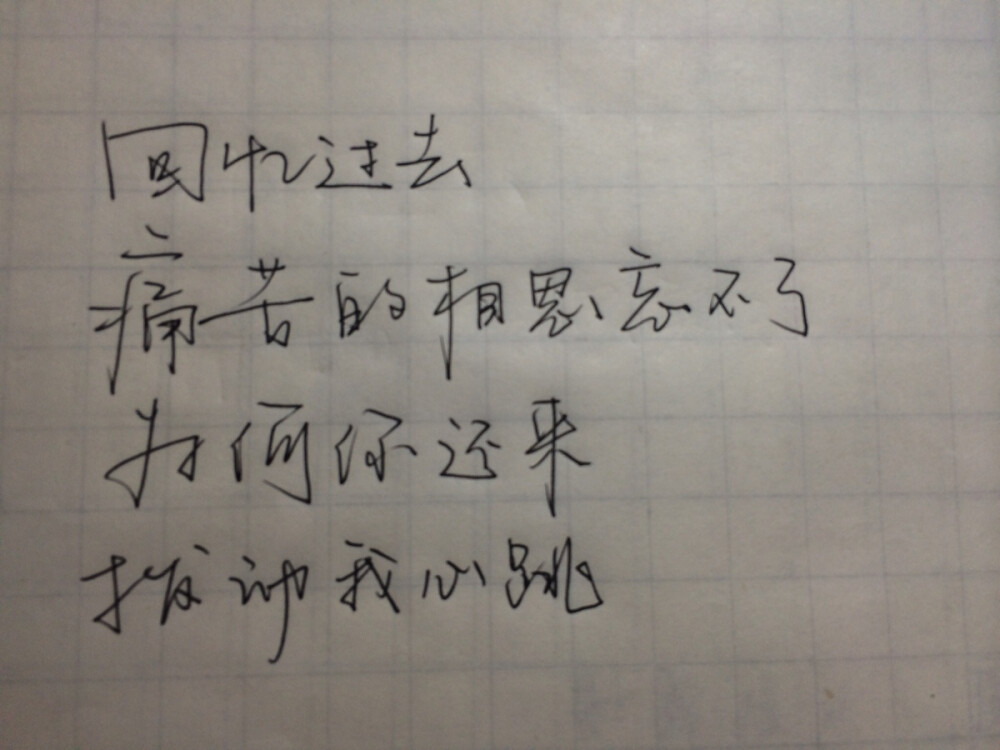 回忆过去
痛苦的相思忘不了
为何你还来
拨动我心跳